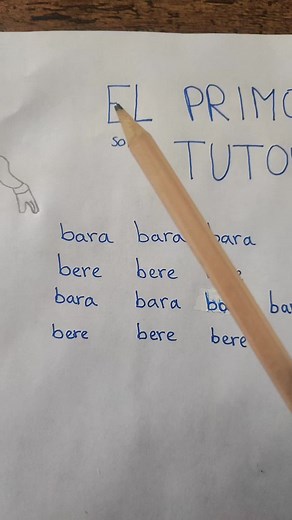 EL PRIMO
so TUTO
bara bara bara
bere bere
bara bara ba
bere bere bere